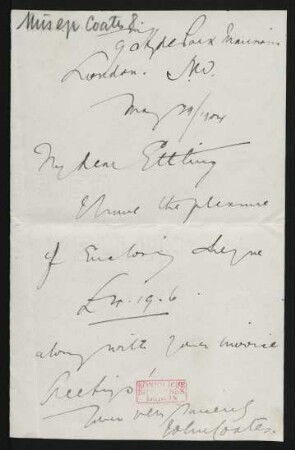 Coates
9 Clyde Park Mansions
London. N.W.
May 29/1904
My dear Ettling
I have the pleasure
of Enclosing cheque
£4.19.6.
along with your invoice
Greetings!
Yours very sincerely
John Coates.